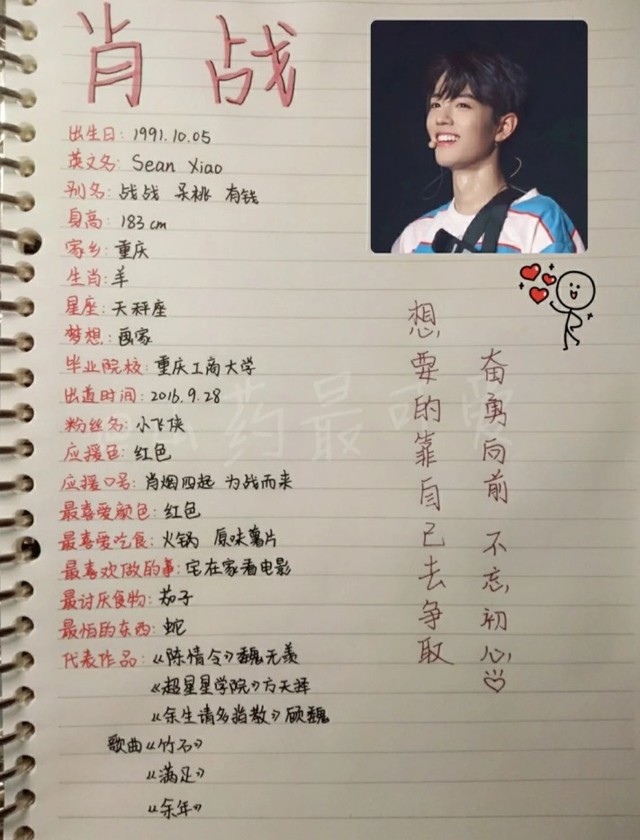 肖战
出生日：1991.10.05
英文名：Sean Xiao
别名：战战 呆桃 有钱
身高：183cm
家乡：重庆
生肖：羊
星座：天秤座
梦想：画家
毕业院校：重庆工商大学
出道时间：2016.9.28
粉丝名：小飞侠
应援色：红色
应援口号：肖烟四起 为战而来
最喜爱颜色：红色
最喜爱吃食：火锅 原味薯片
最喜欢做的事：宅在家看电影
最讨厌食物：茄子
最怕的东西：蛇
代表作品：《陈情令》魏无羡
《超星星学院》方天泽
《余生请多指教》顾魏
歌曲《竹石》
《满足》
《余年》
想要的靠自己去争取
奋勇向前 不忘初心
药最可爱